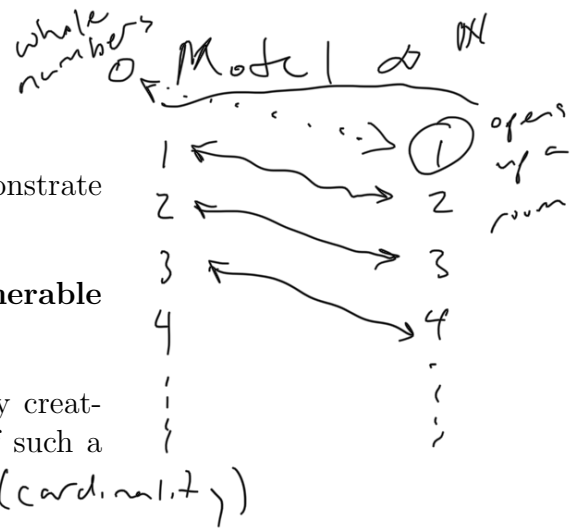 whole
numbers
0 Model ∞ ℕ
1 1 opens
up a
onstrate
2 2 room
3 3
nerable
4 4
y creat-
f such a
(cardinality)